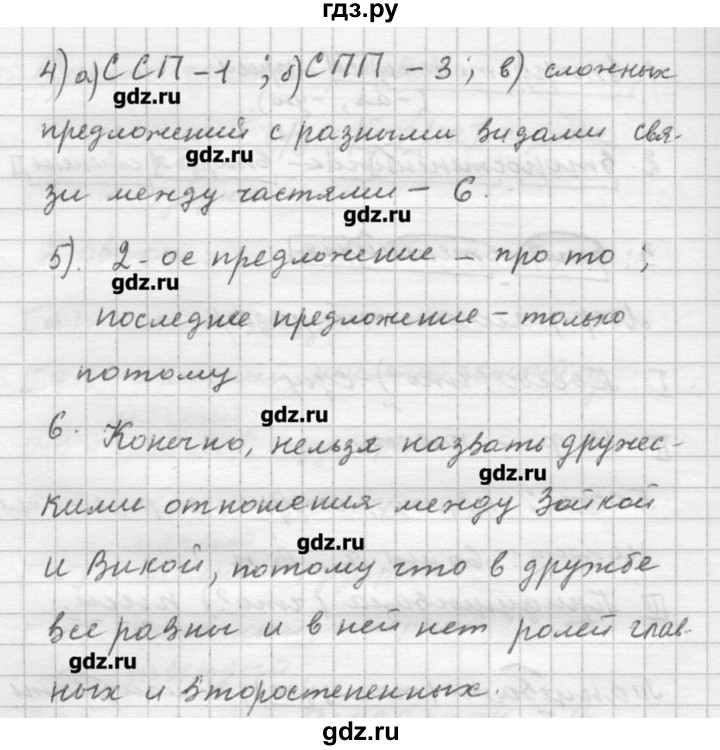 гдз.ру
4) а) ССП – 1 ; б) СПП – 3 ; в) сложных
gdz.ru
предложений с разными видами свя-
gdz.ru
зи между частями – 6.
gdz.ru
5). 2-ое предложение – про то ;
gdz.ru
последнее предложение – только
потому
gdz.ru
6. Конечно, нельзя назвать дружес-
gdz.ru
кими отношения между Зойкой
gdz.ru
и Викой, потому что в дружбе
все равны и в ней нет ролей глав-
gdz.ru
ных и второстепенных.
gdz.ru